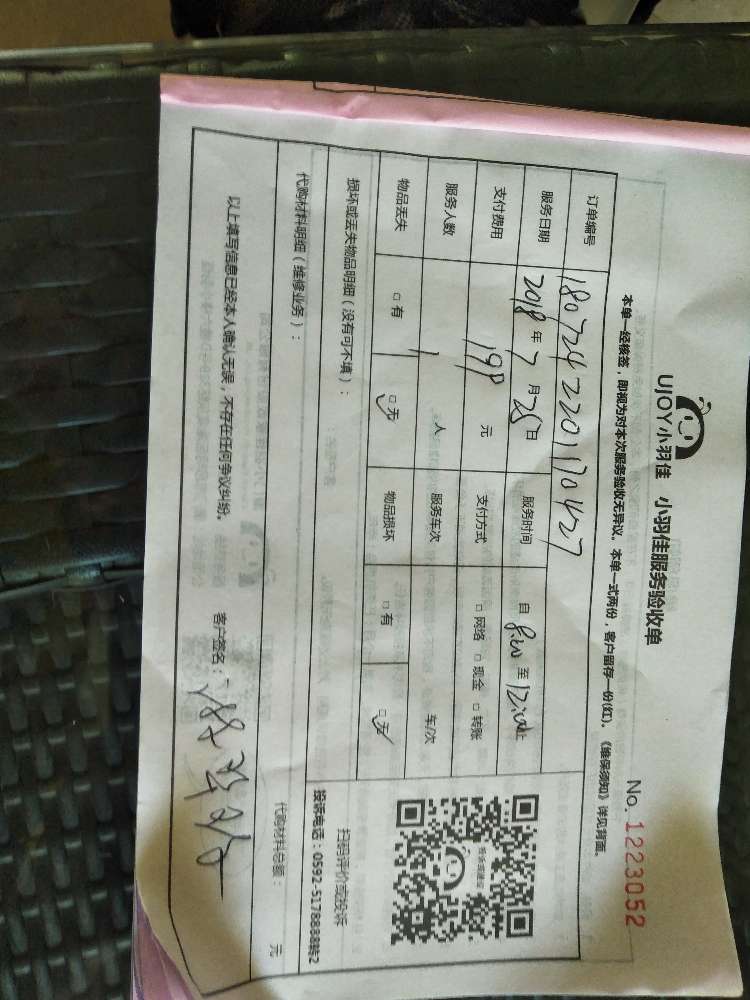 UJOY小羽佳 小羽佳服务验收单
No. 1223052
本单一经核签，即视为对本次服务验收无异议。本单一式两份，客户留存一份(红)。《维保须知》详见背面。
订单编号 180724220170427
服务日期 2018年7月25日 服务时间 自 8:00 至 12:00止
支付费用 199 元 支付方式 □网络 □现金 □转账
服务人数 1 人 服务车次 车/次
物品丢失 □有 □无 物品损坏 □有 □无
损坏或丢失物品明细（没有可不填）：
扫码评价或投诉
投诉电话：0592-5178888转2
代购材料明细（维修业务）：
代购材料总额： 元
以上填写信息已经本人确认无误，不存在任何争议纠纷。 客户签名：